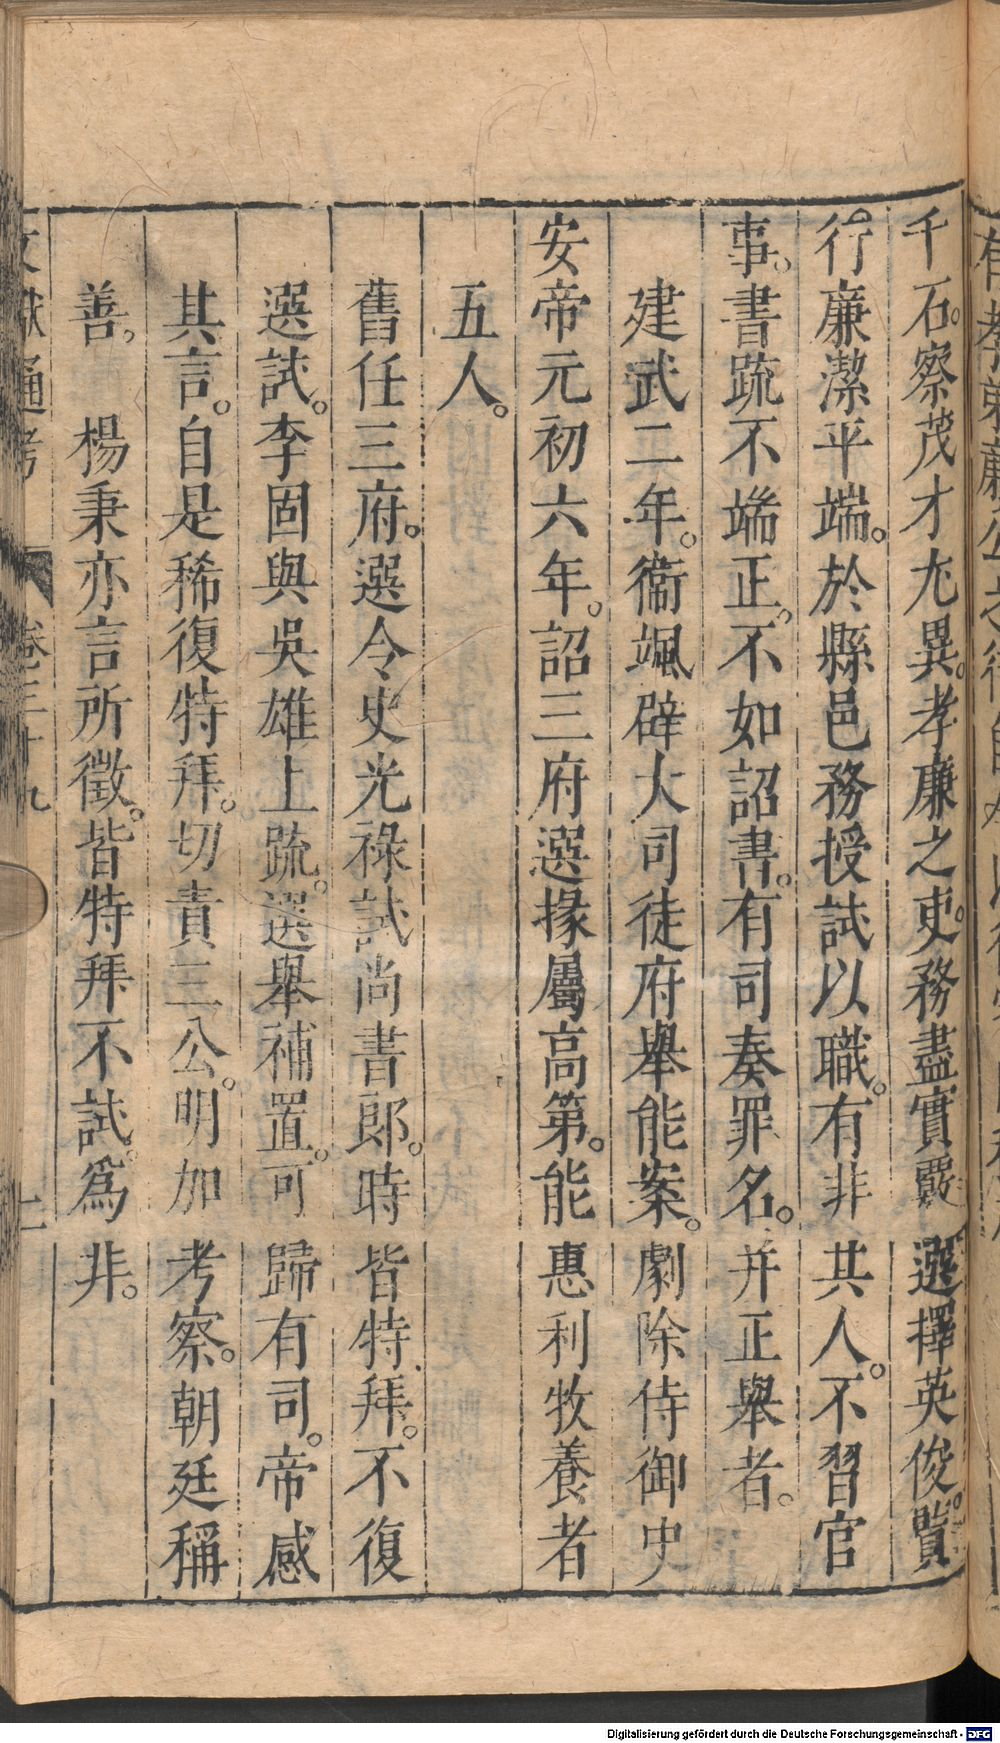 千石。察茂才尤異。孝廉之吏。務盡實覈。選擇英俊。賢
行廉潔平端。於縣邑務授試以職。有非其人。不習官
事。書疏不端正。不如詔書。有司奏罪名。并正舉者。
建武二年。衞颯辟大司徒府舉能案。劇除侍御史
安帝元初六年。詔三府選掾屬高第。能惠利牧養者
五人。
舊任三府。選令史光祿試尚書郎。時皆特拜。不復
選試。李固與吳雄上疏。選舉補置。可歸有司。帝感
其言。自是稀復特拜。切責三公。明加考察。朝廷稱
善。 楊秉亦言所徵。皆特拜不試。爲非。
文獻通考 卷三十九
Digitalisierung gefördert durch die Deutsche Forschungsgemeinschaft - DFG